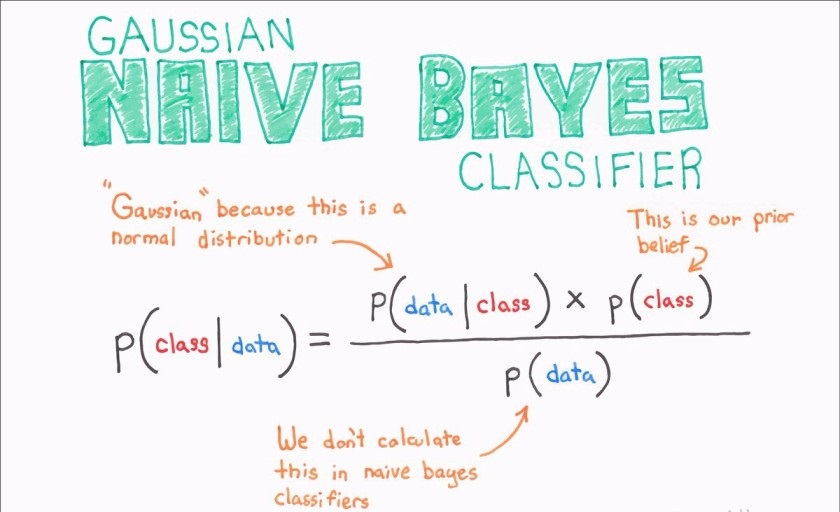 GAUSSIAN
NAIVE BAYES
CLASSIFIER
"Gaussian" because this is a
normal distribution
This is our prior
belief
P(data | class) × P(class)
P(class | data) =
P(data)
We don't calculate
this in naive bayes
classifiers